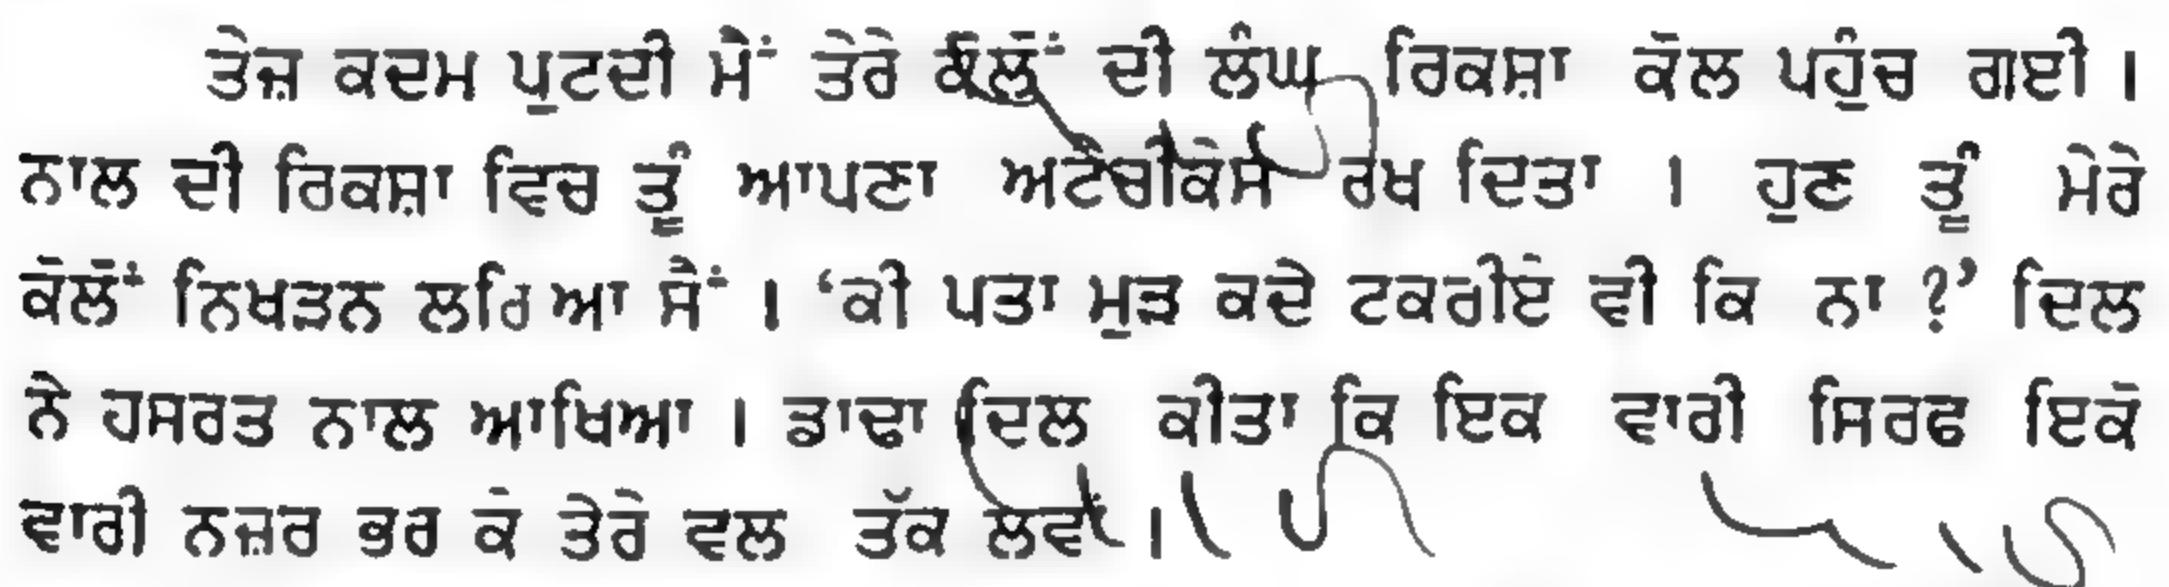 ਤੇਜ਼ ਕਦਮ ਪੁਟਦੀ ਮੈਂ ਤੇਰੇ ਕੋਲੋਂ ਦੀ ਲੰਘ ਰਿਕਸ਼ਾ ਕੋਲ ਪਹੁੰਚ ਗਈ ।
ਨਾਲ ਦੀ ਰਿਕਸ਼ਾ ਵਿਚ ਤੂੰ ਆਪਣਾ ਅਟੈਚੀਕੇਸ ਰਖ ਦਿਤਾ । ਹੁਣ ਤੂੰ ਮੇਰੇ
ਕੋਲੋਂ ਨਿਖੜਨ ਲਰਿਆ ਸੈਂ । ‘ਕੀ ਪਤਾ ਮੁੜ ਕਦੇ ਟਕਰੀਏ ਵੀ ਕਿ ਨਾ ?’ ਦਿਲ
ਨੇ ਹਸਰਤ ਨਾਲ ਆਖਿਆ । ਡਾਢਾ ਦਿਲ ਕੀਤਾ ਕਿ ਇਕ ਵਾਰੀ ਸਿਰਫ ਇਕੋ
ਵਾਰੀ ਨਜ਼ਰ ਭਰ ਕੇ ਤੇਰੇ ਵਲ ਤੱਕ ਲਵਾਂ ।